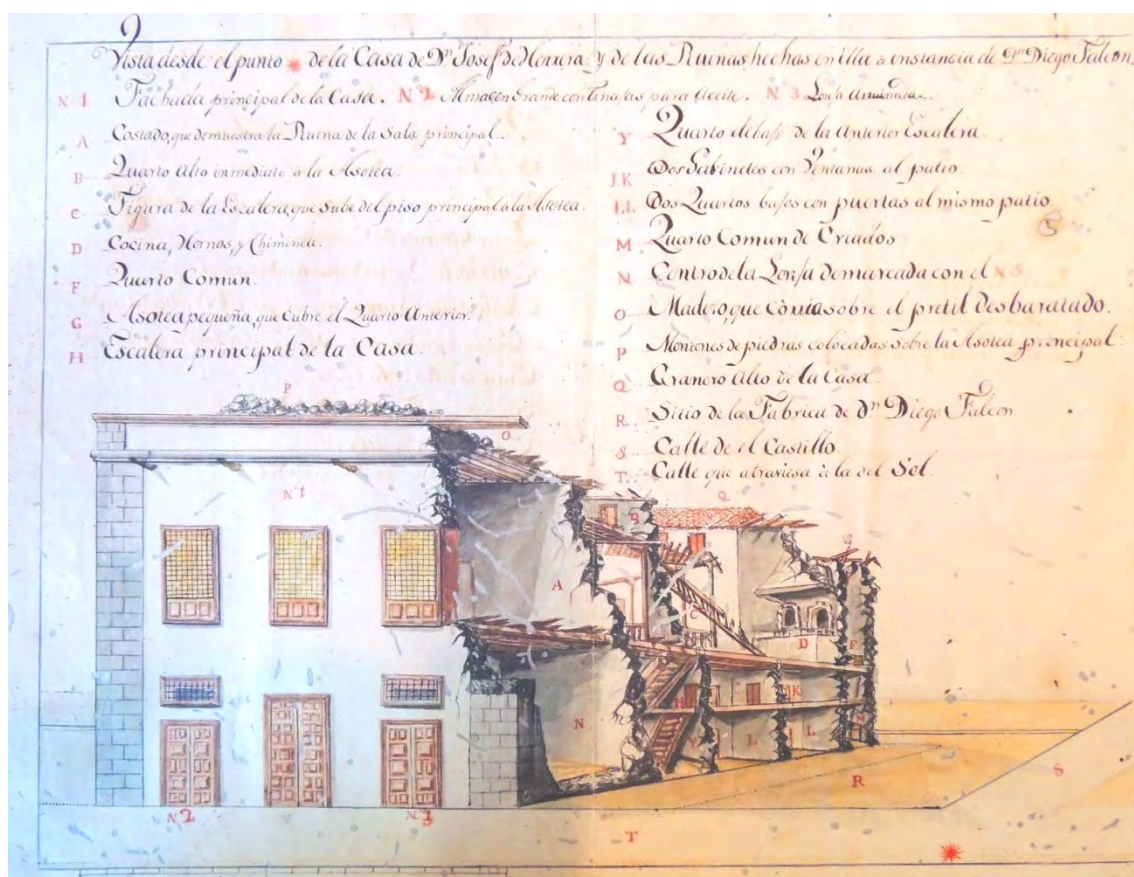 Vista desde el punto de la Casa de Dn. Josef de Herrera y de las Ruinas hechas en ella a instancia de Dn. Diego Falcon
N 1 Fachada principal de la Casa. N 2 Almacen Grande con tinajas para Aceite. N 3 Lonja Arruinada.
A Costado, que demuestra la Ruina de la Sala principal.
B Quarto Alto inmediato a la Asotea.
C Figura de la Escalera, que Sube del piso principal à la Asotea.
D Cocina, Hornos, y Chiminea.
F Quarto Comun.
G Asotea pequeña, que Cubre el Quarto Anterior.
H Escalera principal de la Casa.
Y Quarto debaxo de la Anterior Escalera.
J K Dos Gabinetes con Ventanas al patio.
LL Dos Quartos baxos con puertas al mismo patio
M Quarto Comun de Criados
N Centro de la Lonja demarcada con el N 3
O Madero, que Corria sobre el pretil desbaratado.
P Montones de piedras colocadas Sobre la Asotea principal:
Q Granero Alto de la Casa
R Sitio de la Fabrica de Dn. Diego Falcon
S Calle de el Castillo
T. Calle que atraviesa à la del Sol.
P
O
N 1
Q
B
G
A
C
D
F
H
J K
N
Y
L
L
M
R
S
N 2
N 3
T